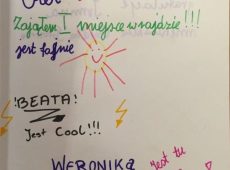 Zająłem I miejsce w rajdzie !!!
jest fajnie
!BEATA!
Jest Cool!!!
WERONIKA
jest tu